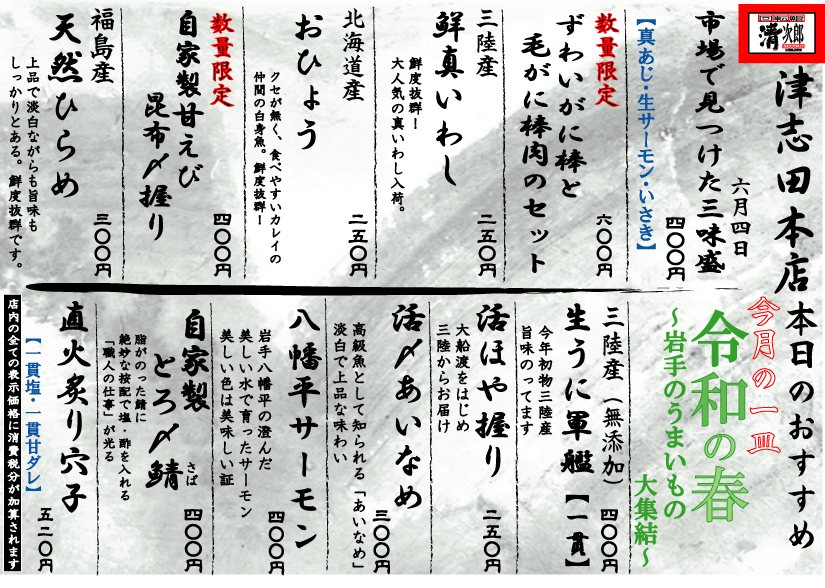 回転寿司
清次郎
津志田本店 本日のおすすめ
六月四日
市場で見つけた三味盛
四〇〇円
【真あじ・生サーモン・いさき】
数量限定
ずわいがに棒と
毛がに棒肉のセット
六〇〇円
三陸産
鮮真いわし
二五〇円
鮮度抜群!
大人気の真いわし入荷。
北海道産
おひょう
二五〇円
クセが無く、食べやすいカレイの
仲間の白身魚。鮮度抜群!
数量限定
自家製甘えび
昆布〆握り
四〇〇円
福島産
天然ひらめ
三〇〇円
上品で淡白ながらも旨味も
しっかりとある。鮮度抜群です。
今月の一皿
令和の春
~岩手のうまいもの
大集結~
三陸産(無添加)
生うに軍艦【一貫】
四〇〇円
今年初物三陸産
旨味のってます
活ほや握り
二五〇円
大船渡をはじめ
三陸からお届け
活〆あいなめ
三〇〇円
高級魚として知られる「あいなめ」
淡白で上品な味わい
八幡平サーモン
四〇〇円
岩手八幡平の澄んだ
美しい水で育ったサーモン
美しい色は美味しい証
自家製
とろ〆鯖
さば
四〇〇円
脂がのった鯖に
絶妙な按配で塩・酢を入れる
「職人の仕事」が光る
直火炙り穴子
五二〇円
【一貫塩・一貫甘ダレ】
店内の全ての表示価格に消費税分が加算されます